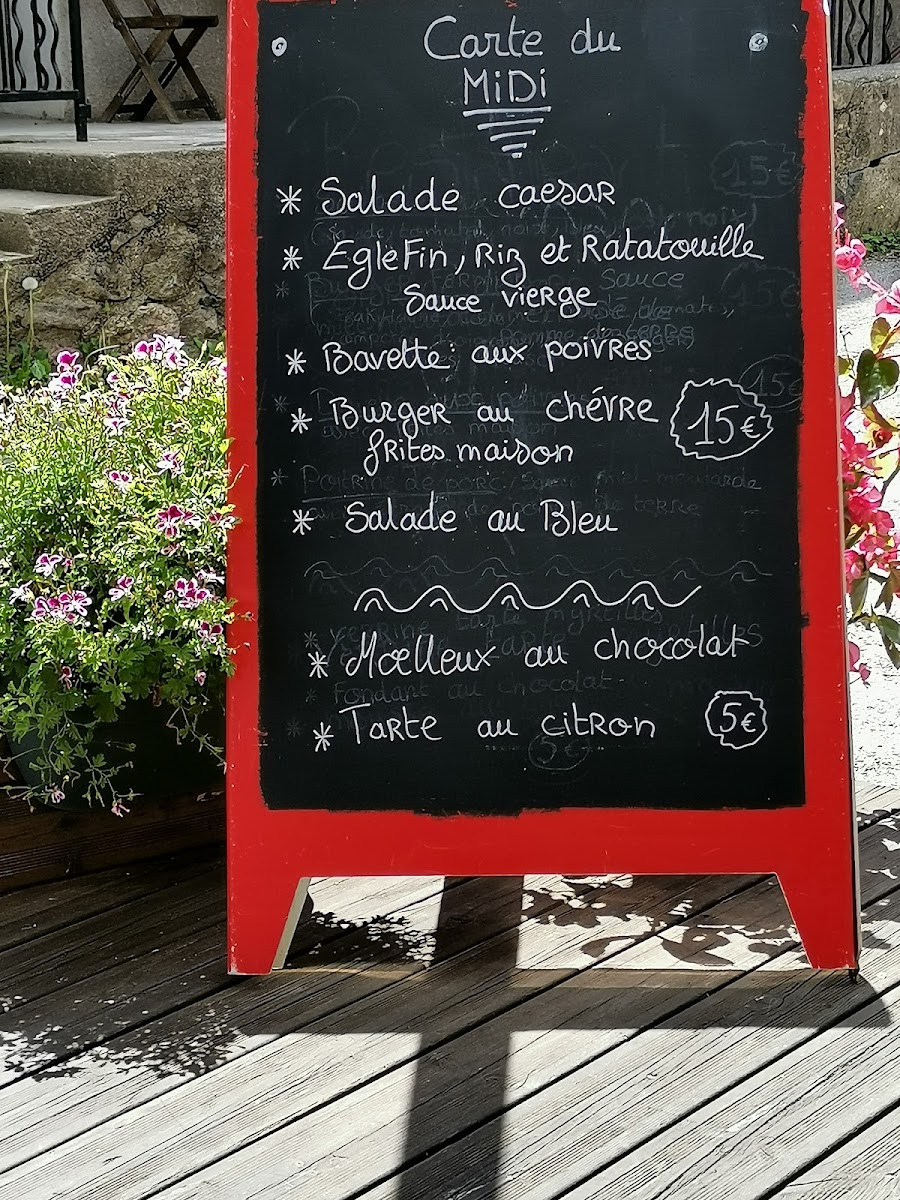 Carte du
MiDi
* Salade caesar
* EgleFin, Riz et Ratatouille
Sauce vierge
* Bavette aux poivres
* Burger au chévre 15€
frites maison
* Salade au Bleu
* Mœlleux au chocolat
* Tarte au citron 5€